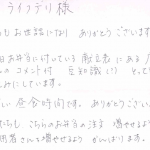 ライフデリ 様
もお世話になり ありがとうございます
日お弁当に付いている 献立表にある
のコメント付 豆知識(!) とって
しみにしています。
しい 昼食時間です。ありがとうござい
たちも、こちらのお弁当の注文 増やせるよ
用者さんを増やせるよう がんばります。